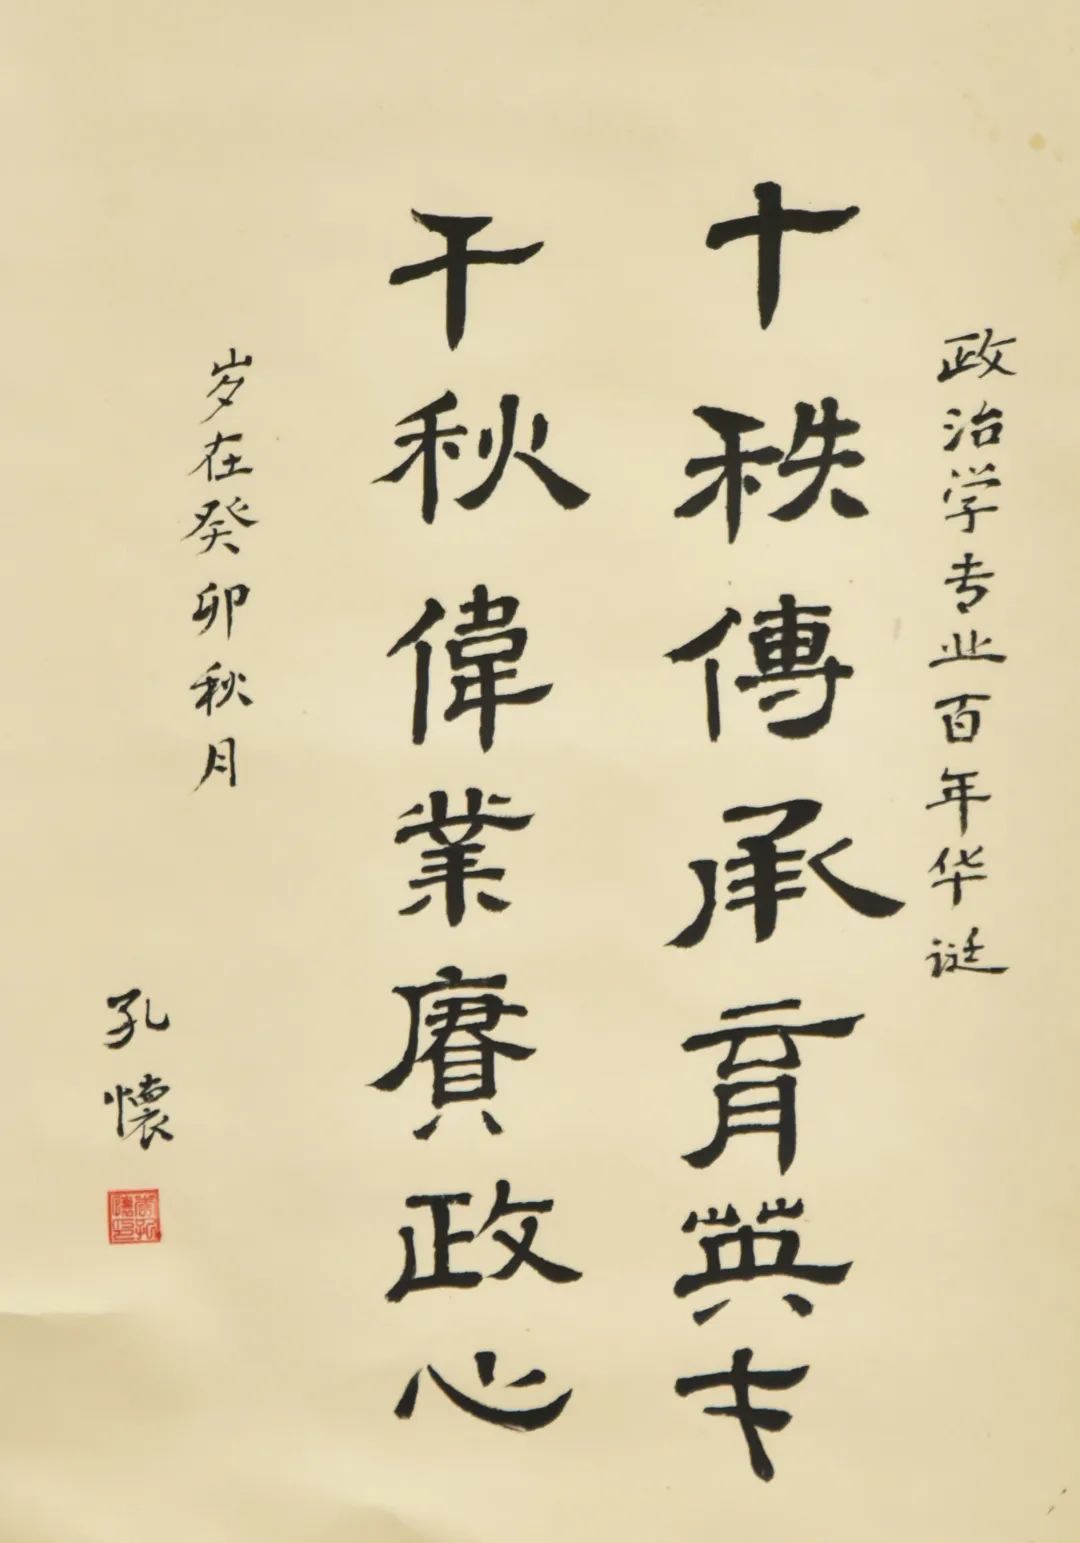 政治学专业百年华诞
十秩傳承育英才
千秋偉業賡政心
岁在癸卯秋月
孔懷